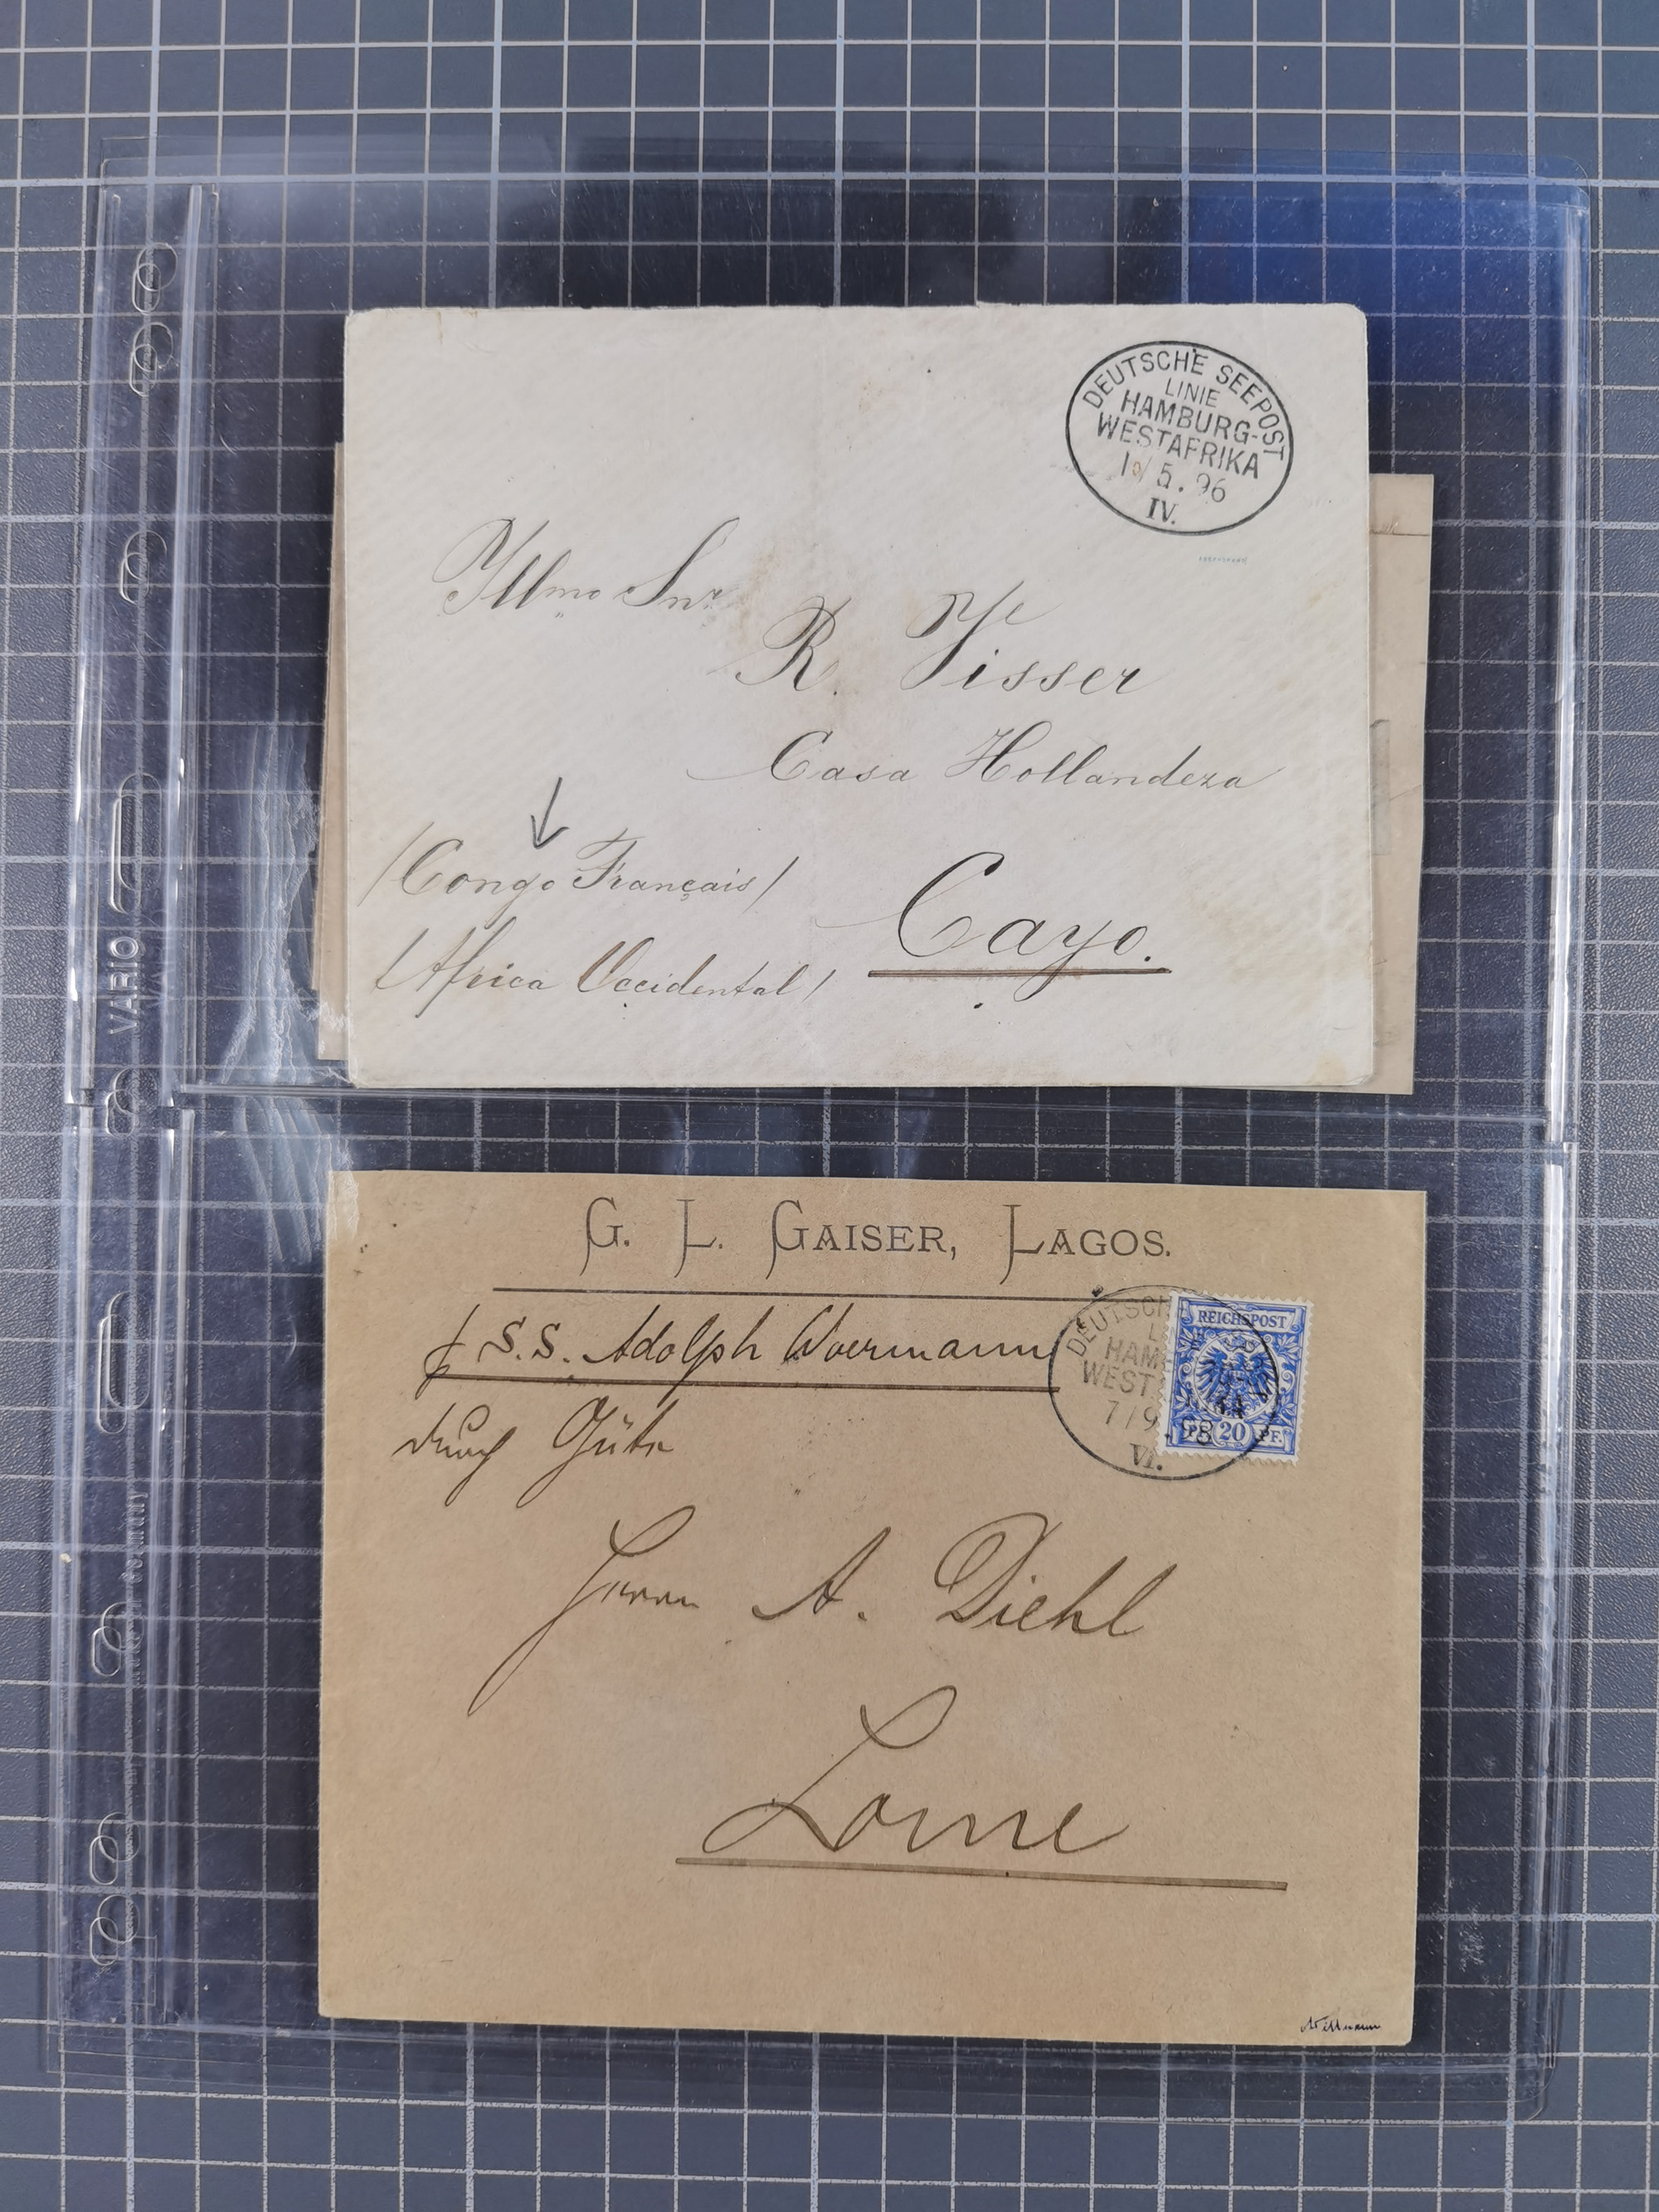 DEUTSCHE SEEPOST
LINIE
HAMBURG-
WESTAFRIKA
10/5.96
IV.
Illmo Snr
R. Visser
Casa Hollandeza
(Congo Français)
Cayo.
(Africa Occidental)
VARIO
G. L. GAISER, LAGOS.
p S.S. Adolph Woermann
durch Güte
DEUTSCH
L
HAM
WEST
7/9 98
VI.
REICHSPOST
PF 20 PF.
Herrn A. Diehl
Lome